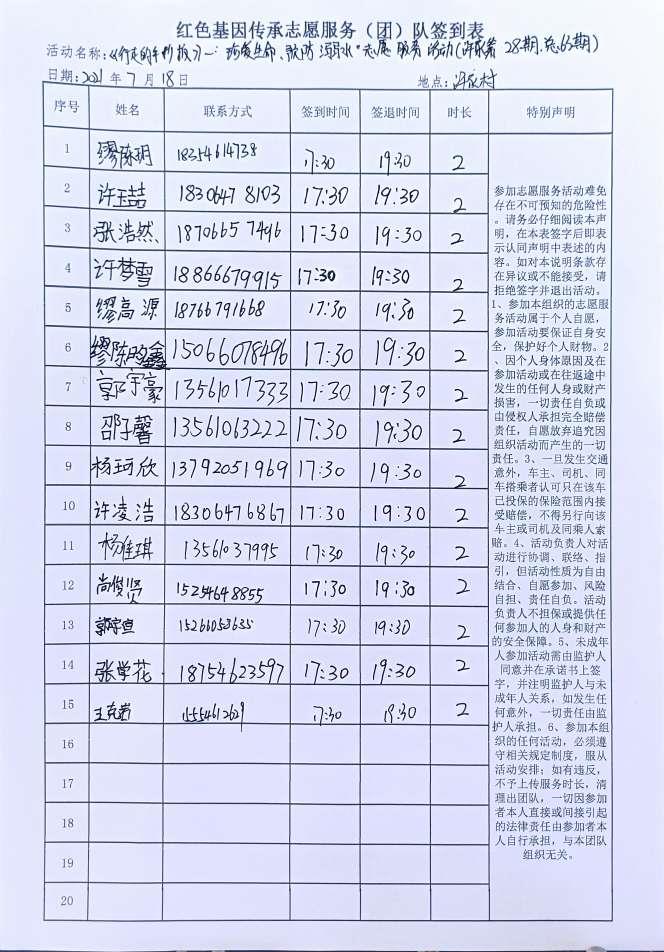 红色基因传承志愿服务（团）队签到表
活动名称:《行走的手抄报》一:珍爱生命、预防溺水"志愿服务活动(许家第28期.总63期)
日期:2021年7月18日 地点:许家村
序号 姓名 联系方式 签到时间 签退时间 时长 特别声明
1 缪陈玥 18354614738 17:30 19:30 2
2 许玉喆 18306478103 17:30 19:30 2
3 张浩然 18706657496 17:30 19:30 2
4 许梦雪 18866679915 17:30 19:30 2
5 缪高源 18766791668 17:30 19:30 2
6 缪陈昀鑫 15066078496 17:30 19:30 2
7 郭宇豪 13561017333 17:30 19:30 2
8 邵子馨 13561063222 17:30 19:30 2
9 杨珂欣 13792051969 17:30 19:30 2
10 许凌浩 18306476867 17:30 19:30 2
11 杨佳琪 13561037995 17:30 19:30 2
12 尚俊贤 15254648855 17:30 19:30 2
13 15266053635 17:30 19:30 2
14 张学花 18754623597 17:30 19:30 2
15 王克岩 15554612629 17:30 19:30 2
16
17
18
19
20
参加志愿服务活动难免
存在不可预知的危险性
。请务必仔细阅读本声
明，在本表签字后即表
示认同声明中表述的内
容。如对本说明条款存
在异议或不能接受，请
拒绝签字并退出活动。
1、参加本组织的志愿服
务活动属于个人自愿，
参加活动要保证自身安
全，保护好个人财物。2
、因个人身体原因及在
参加活动或在往返途中
发生的任何人身或财产
损害，一切责任自负或
由侵权人承担完全赔偿
责任，自愿放弃追究因
组织活动而产生的一切
责任。3、一旦发生交通
意外，车主、司机、同
车搭乘者认可只在该车
已投保的保险范围内接
受赔偿，不得另行向该
车主或司机及同乘人索
赔。4、活动负责人对活
动进行协调、联络、指
引，但活动性质为自由
结合、自愿参加、风险
自担、责任自负。活动
负责人不担保或提供任
何参加人的人身和财产
的安全保障。5、未成年
人参加活动需由监护人
同意并在承诺书上签
字，并注明监护人与未
成年人关系，如发生任
何意外，一切责任由监
护人承担。6、参加本组
织的任何活动，必须遵
守相关规定制度，服从
活动安排；如有违反，
不予上传服务时长，清
理出团队，一切因参加
者本人直接或间接引起
的法律责任由参加者本
人自行承担，与本团队
组织无关。